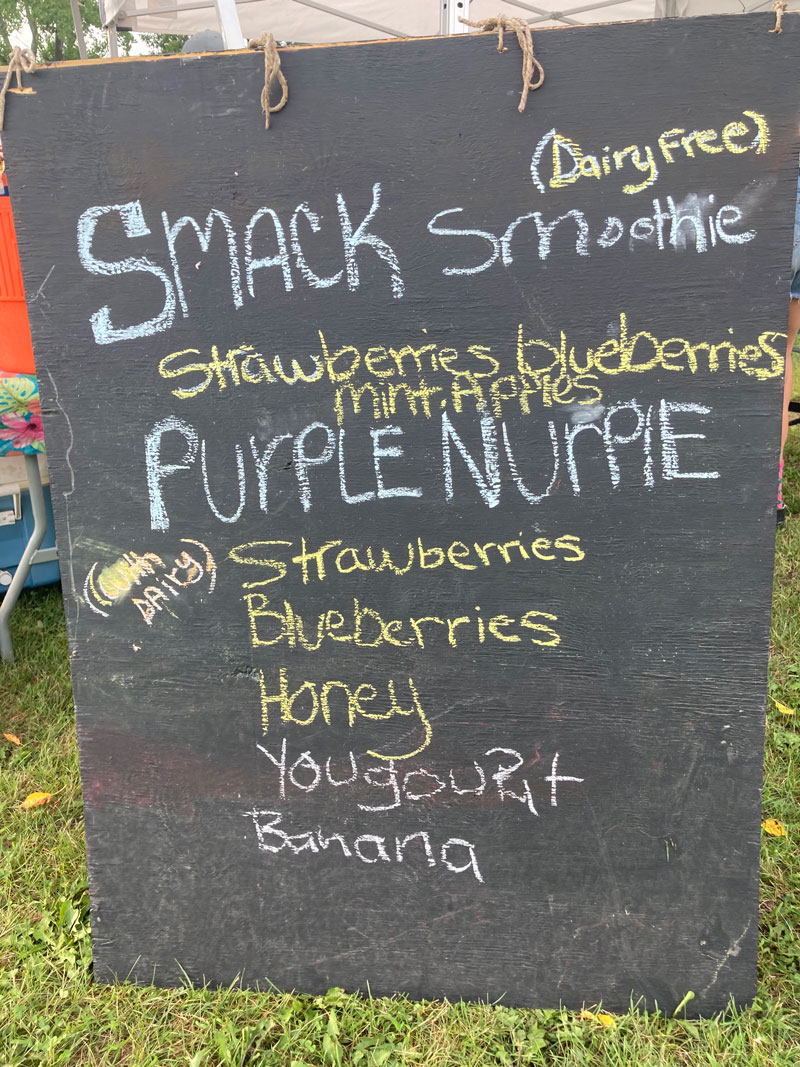 (Dairy Free)
SMACK Smoothie
Strawberries blueberries
mint. Apples
PUrPLE NUrPlE
(with DAiry)
Strawberries
Blueberries
Honey
Yougourt
Banana